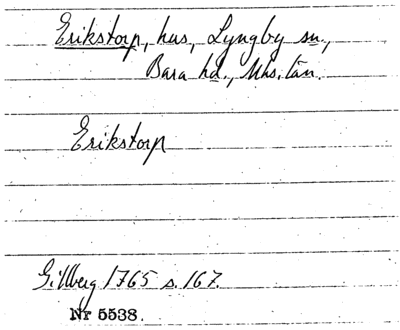 Erikstorp, hus, Lyngby sn.,
Bara hd., Mhs. län.
Erikstorp
Gillberg 1765 s. 167.
Nr 5538.